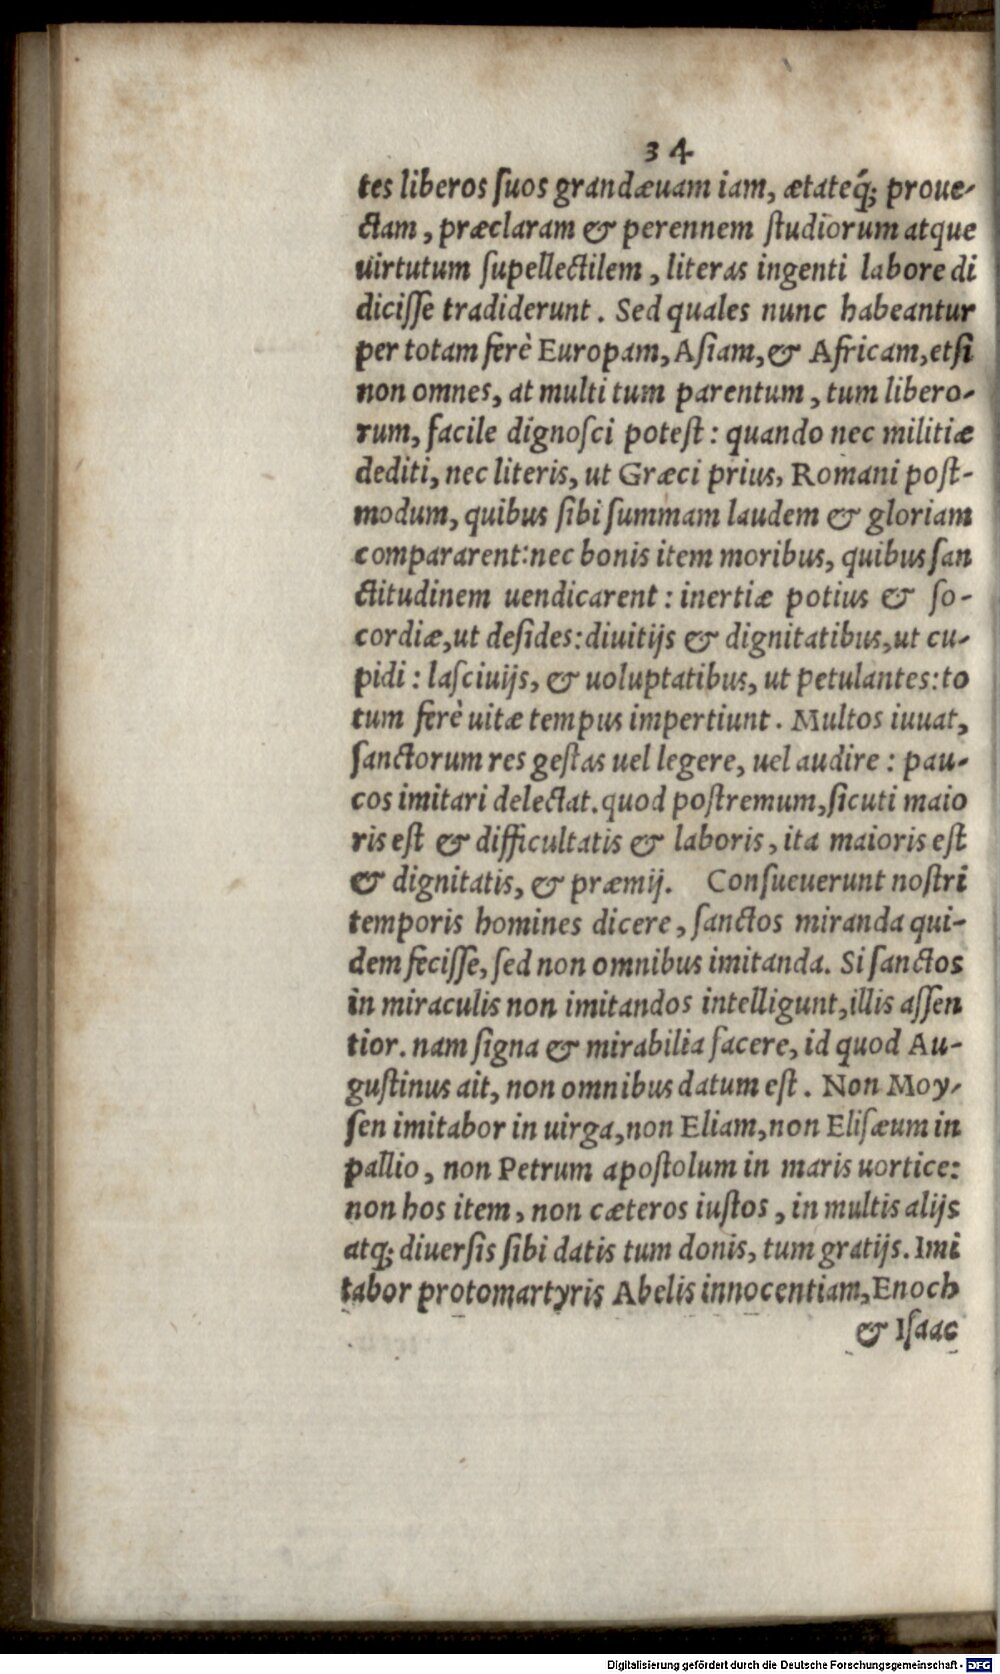 34
tes liberos ſuos grandæuam iam, ætateq́; proue-
ctam, præclaram & perennem ſtudiorum atque
uirtutum ſupellectilem, literas ingenti labore di
diciſſe tradiderunt. Sed quales nunc habeantur
per totam ferè Europam, Aſiam, & Africam, etſi
non omnes, at multi tum parentum, tum libero-
rum, facile dignoſci poteſt: quando nec militiæ
dediti, nec literis, ut Græci prius, Romani poſt-
modum, quibus ſibi ſummam laudem & gloriam
compararent: nec bonis item moribus, quibus ſan
ctitudinem uendicarent: inertiæ potius & ſo-
cordiæ, ut deſides: diuitijs & dignitatibus, ut cu-
pidi: laſciuijs, & uoluptatibus, ut petulantes: to
tum ferè uitæ tempus impertiunt. Multos iuuat,
ſanctorum res geſtas uel legere, uel audire: pau-
cos imitari delectat. quod poſtremum, ſicuti maio
ris eſt & difficultatis & laboris, ita maioris eſt
& dignitatis, & præmij. Conſueuerunt noſtri
temporis homines dicere, ſanctos miranda qui-
dem feciſſe, ſed non omnibus imitanda. Si ſanctos
in miraculis non imitandos intelligunt, illis aſſen
tior. nam ſigna & mirabilia facere, id quod Au-
guſtinus ait, non omnibus datum eſt. Non Moy-
ſen imitabor in uirga, non Eliam, non Eliſæum in
pallio, non Petrum apoſtolum in maris uortice:
non hos item, non cæteros iuſtos, in multis alijs
atq; diuerſis ſibi datis tum donis, tum gratijs. Imi
tabor protomartyris Abelis innocentiam, Enoch
& Iſaac
Digitalisierung gefördert durch die Deutsche Forschungsgemeinschaft - DFG